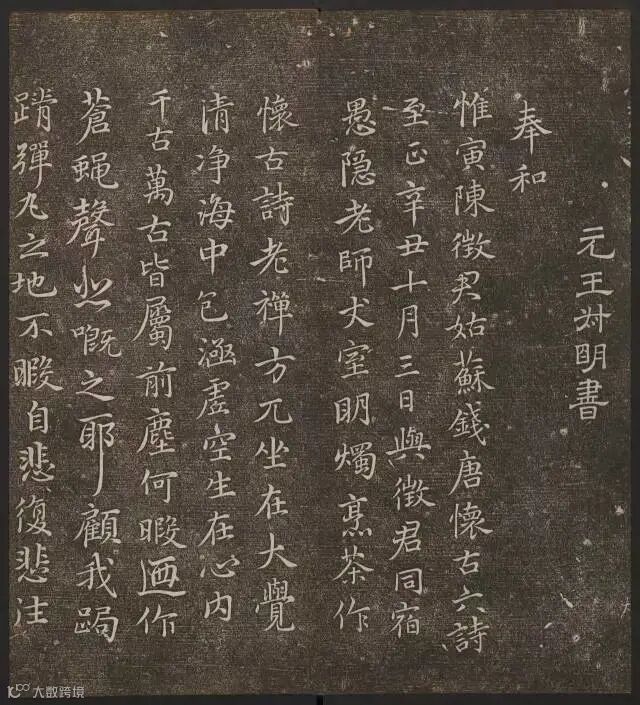 元王叔明書
奉和
惟寅陳徵君姑蘇錢唐懷古六詩
至正辛丑十月三日與徵君同宿
愚隱老師丈室明燭烹茶作
懷古詩老禪方兀坐在大覺
清净海中包涵虛空生在心内
千古萬古皆屬前塵何暇迺作
蒼蝇聲悲嘅之耶顧我跼
蹐彈丸之地不暇自悲復悲注
大数跨境